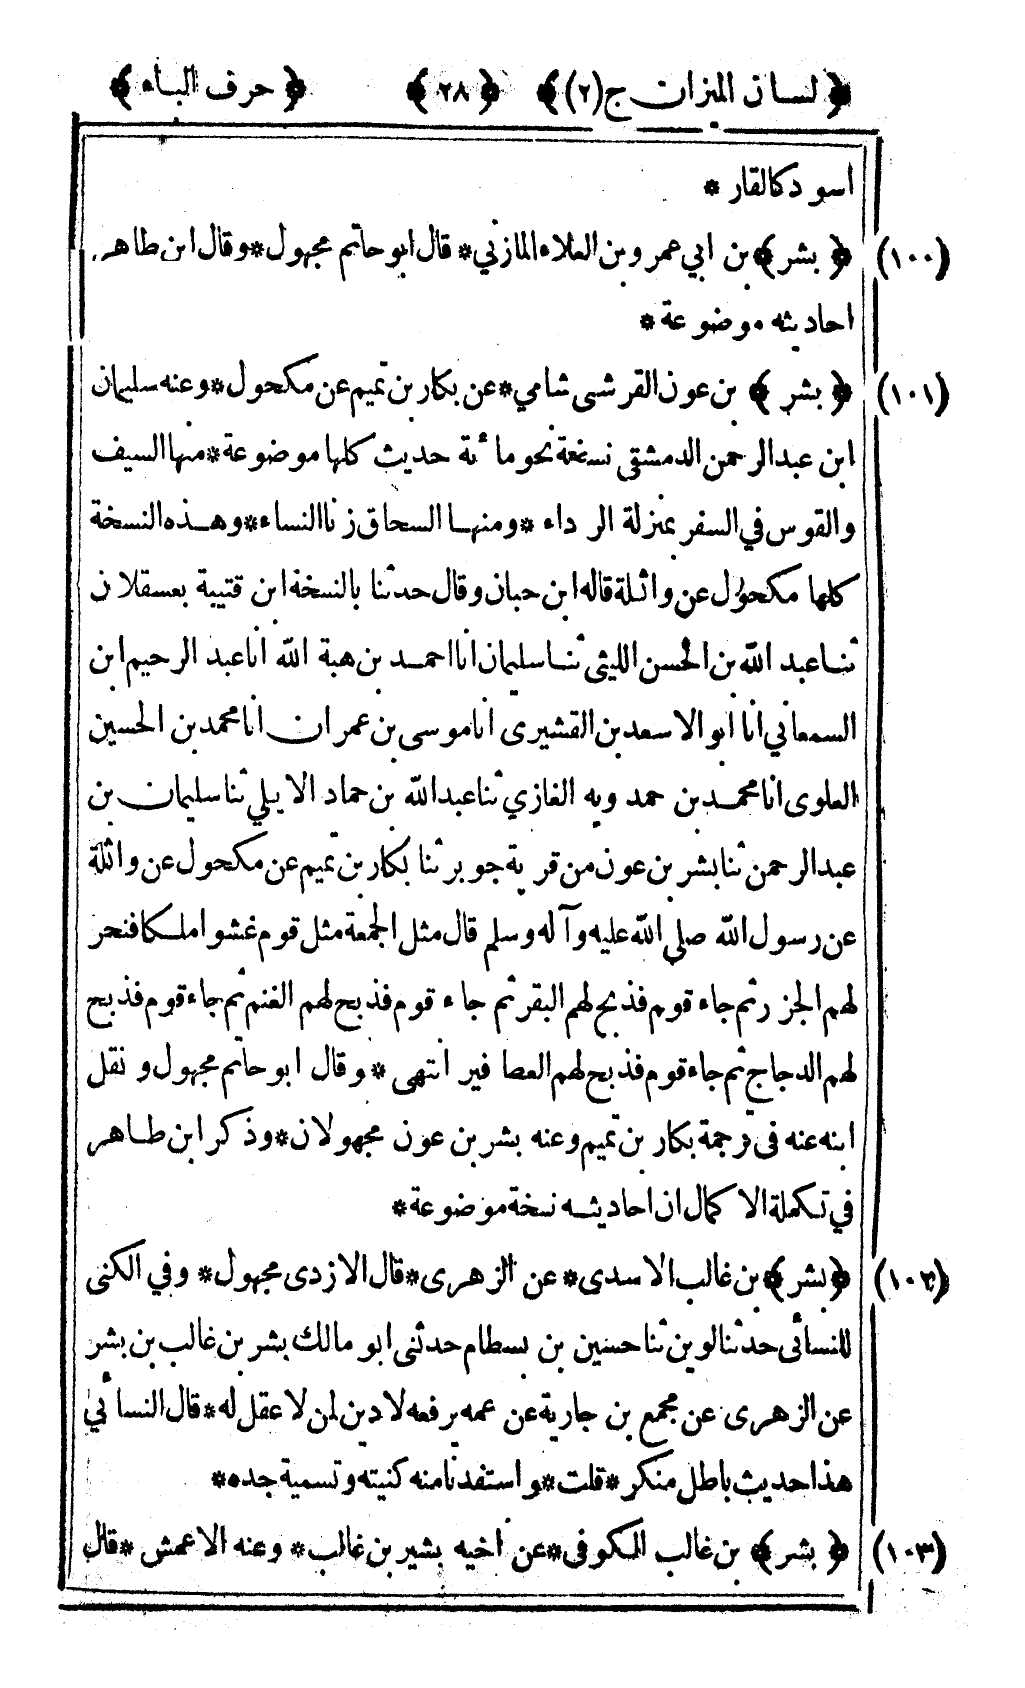 ﴿ لسان الميزان ج (٢) ﴾ ﴿ ٢٨ ﴾ ﴿ حرف الباء ﴾
اسود كالقار *
(١٠٠) ﴿ بشر ﴾ بن ابي عمرو بن العلاء المازني * قال ابو حاتم مجهول * وقال ابن طاهر
احاديثه موضوعة *
(١٠١) ﴿ بشر ﴾ بن عون القرشى شامي * عن بكار بن تميم عن مكحول * وعنه سليمان
ابن عبدالرحمن الدمشقى نسخة نحو مائة حديث كلها موضوعة * منها السيف
والقوس في السفر بمنزلة الرداء * ومنها السحاق زنا النساء * وهذه النسخة
كلها مكحول عن واثلة قاله ابن حبان وقال حدثنا بالنسخة ابن قتيبة بعسقلان
ثنا عبد الله بن الحسن الليثى ثنا سليمان انا احمد بن هبة الله انا عبد الرحيم ابن
السمعاني انا ابو الاسعد بن القشيرى انا موسى بن عمران انا محمد بن الحسين
العلوى انا محمد بن حمدويه الغازي ثنا عبدالله بن حماد الايلي ثنا سليمان بن
عبدالرحمن ثنا بشر بن عون من قرية جوبر ثنا بكار بن تميم عن مكحول عن واثلة
عن رسول الله صلى الله عليه وآله وسلم قال مثل الجمعة مثل قوم غشوا ملكا فنحر
لهم الجزر ثم جاء قوم فذبح لهم البقر ثم جاء قوم فذبح لهم الغنم ثم جاء قوم فذبح
لهم الدجاج ثم جاء قوم فذبح لهم العصافير انتهى * وقال ابو حاتم مجهول ونقل
ابنه عنه فى ترجمة بكار بن تميم وعنه بشر بن عون مجهولان * وذكر ابن طاهر
في تكملة الاكمال ان احاديثه نسخة موضوعة *
(١٠٢) ﴿ بشر ﴾ بن غالب الاسدى * عن الزهرى * قال الازدى مجهول * وفي الكنى
للنسائى حدثنا لوين ثنا حسين بن بسطام حدثنى ابو مالك بشر بن غالب بن بشر
عن الزهرى عن مجمع بن جارية عن عمه يرفعه لادين لمن لا عقل له * قال النسائي
هذا حديث باطل منكر * قلت * واستفدنا منه كنيته وتسمية جده *
(١٠٣) ﴿ بشر ﴾ بن غالب الكوفى * عن اخيه بشير بن غالب * وعنه الاعمش * قال